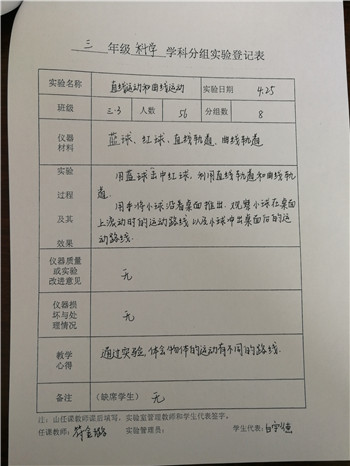 三 年级 科学 学科分组实验登记表
实验名称 直线运动和曲线运动 实验日期 4.25
班级 三.3 人数 56 分组数 8
仪器材料 蓝球、红球、直线轨道、曲线轨道
实验过程及其效果 用蓝球击中红球,利用直线轨道和曲线轨
道.
用手将小球沿着桌面推出,观察小球在桌面
上滚动时的运动路线以及小球冲出桌面后的运
动路线.
仪器质量或实验改进意见 无
仪器损坏与处理情况 无
教学心得 通过实验,体会物体的运动有不同的路线.
备注 (缺席学生) 无
注:由任课教师课后填写,实验室管理教师和学生代表签字。
任课教师: 实验管理员: 学生代表: